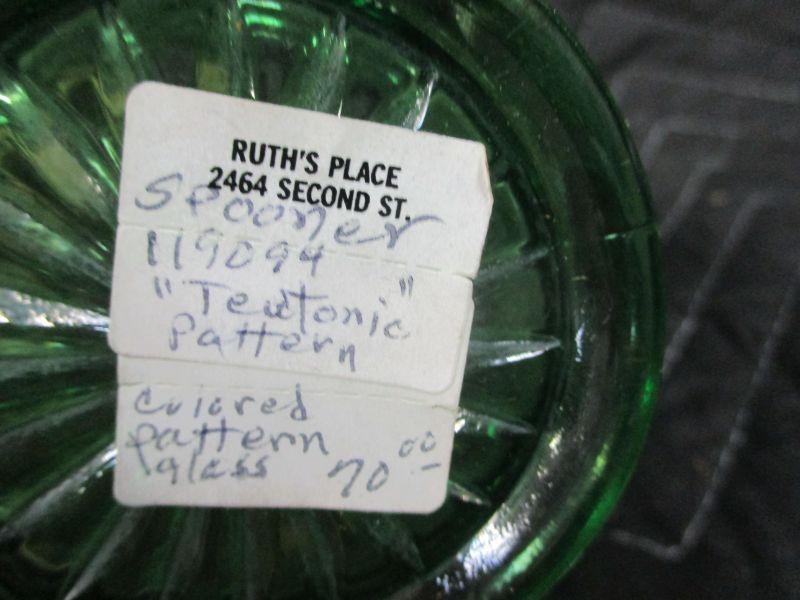 RUTH'S PLACE
2464 SECOND ST.
Spooner
119094
"Teutonic"
Pattern
colored
pattern
glass 70⁰⁰